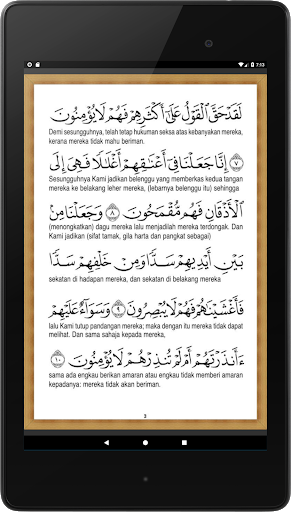 7:53
لَقَدْ حَقَّ ٱلْقَوْلُ عَلَىٰٓ أَكْثَرِهِمْ فَهُمْ لَا يُؤْمِنُونَ
Demi sesungguhnya, telah tetap hukuman seksa atas kebanyakan mereka,
kerana mereka tidak mahu beriman.
٧ إِنَّا جَعَلْنَا فِىٓ أَعْنَٰقِهِمْ أَغْلَٰلًا فَهِىَ إِلَى
Sesungguhnya Kami jadikan belenggu yang memberkas kedua tangan
mereka ke belakang leher mereka, (lebarnya belenggu itu) sehingga
ٱلْأَذْقَانِ فَهُم مُّقْمَحُونَ ٨ وَجَعَلْنَا مِنۢ
(menongkatkan) dagu mereka lalu menjadilah mereka terdongak. Dan
Kami jadikan (sifat tamak, gila harta dan pangkat sebagai)
بَيْنِ أَيْدِيهِمْ سَدًّا وَمِنْ خَلْفِهِمْ سَدًّا
sekatan di hadapan mereka, dan sekatan di belakang mereka
فَأَغْشَيْنَٰهُمْ فَهُمْ لَا يُبْصِرُونَ ٩ وَسَوَآءٌ عَلَيْهِمْ
lalu Kami tutup pandangan mereka; maka dengan itu mereka tidak dapat
melihat. Dan sama sahaja kepada mereka,
ءَأَنذَرْتَهُمْ أَمْ لَمْ تُنذِرْهُمْ لَا يُؤْمِنُونَ ١٠
sama ada engkau berikan amaran atau engkau tidak memberi amaran
kepadanya: mereka tidak akan beriman.
3